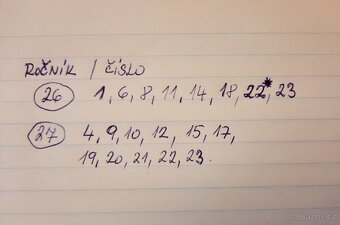 ROČNÍK / ČÍSLO
26 1, 6, 8, 11, 14, 18, 22*, 23
27 4, 9, 10, 12, 15, 17,
19, 20, 21, 22, 23.
Bazos.cz